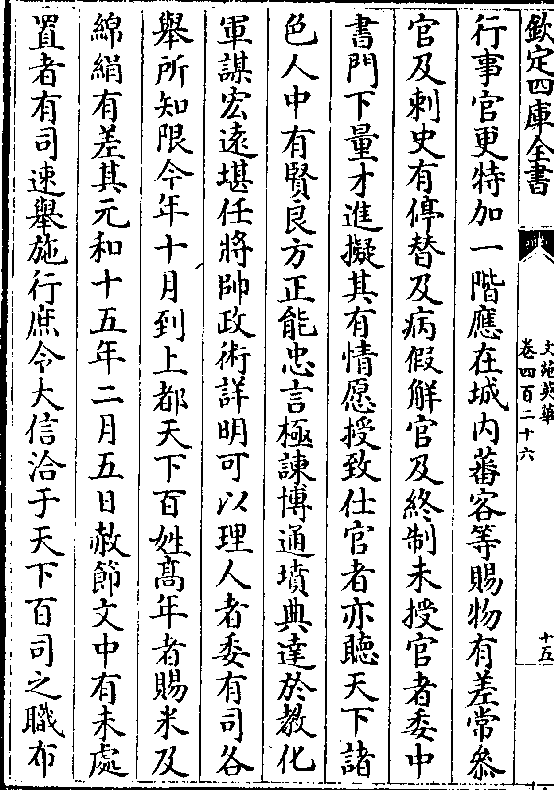 欽定四庫全書
文苑英華
卷四百二十六
十五
行事官更特加一階應在城内蕃客等賜物有差常叅
官及刺史有停替及病假解官及終制未授官者委中
書門下量才進擬其有情愿授致仕官者亦聽天下諸
色人中有賢良方正能忠言極諫博通墳典達於教化
軍謀宏逺堪任將帥政術詳明可以理人者委有司各
舉所知限今年十月到上都天下百姓髙年者賜米及
綿絹有差其元和十五年二月五日赦節文中有未處
置者有司速舉施行庶令大信洽于天下百司之職布